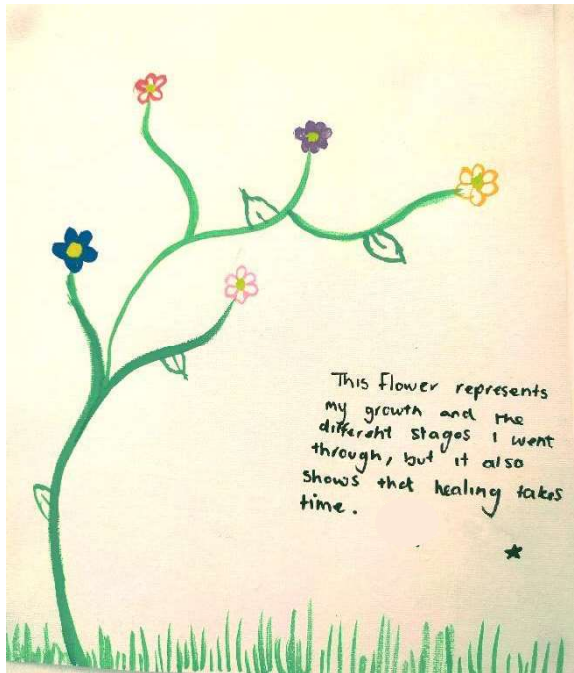 This Flower represents
my growth and the
different stages I went
through, but it also
shows that healing takes
time.